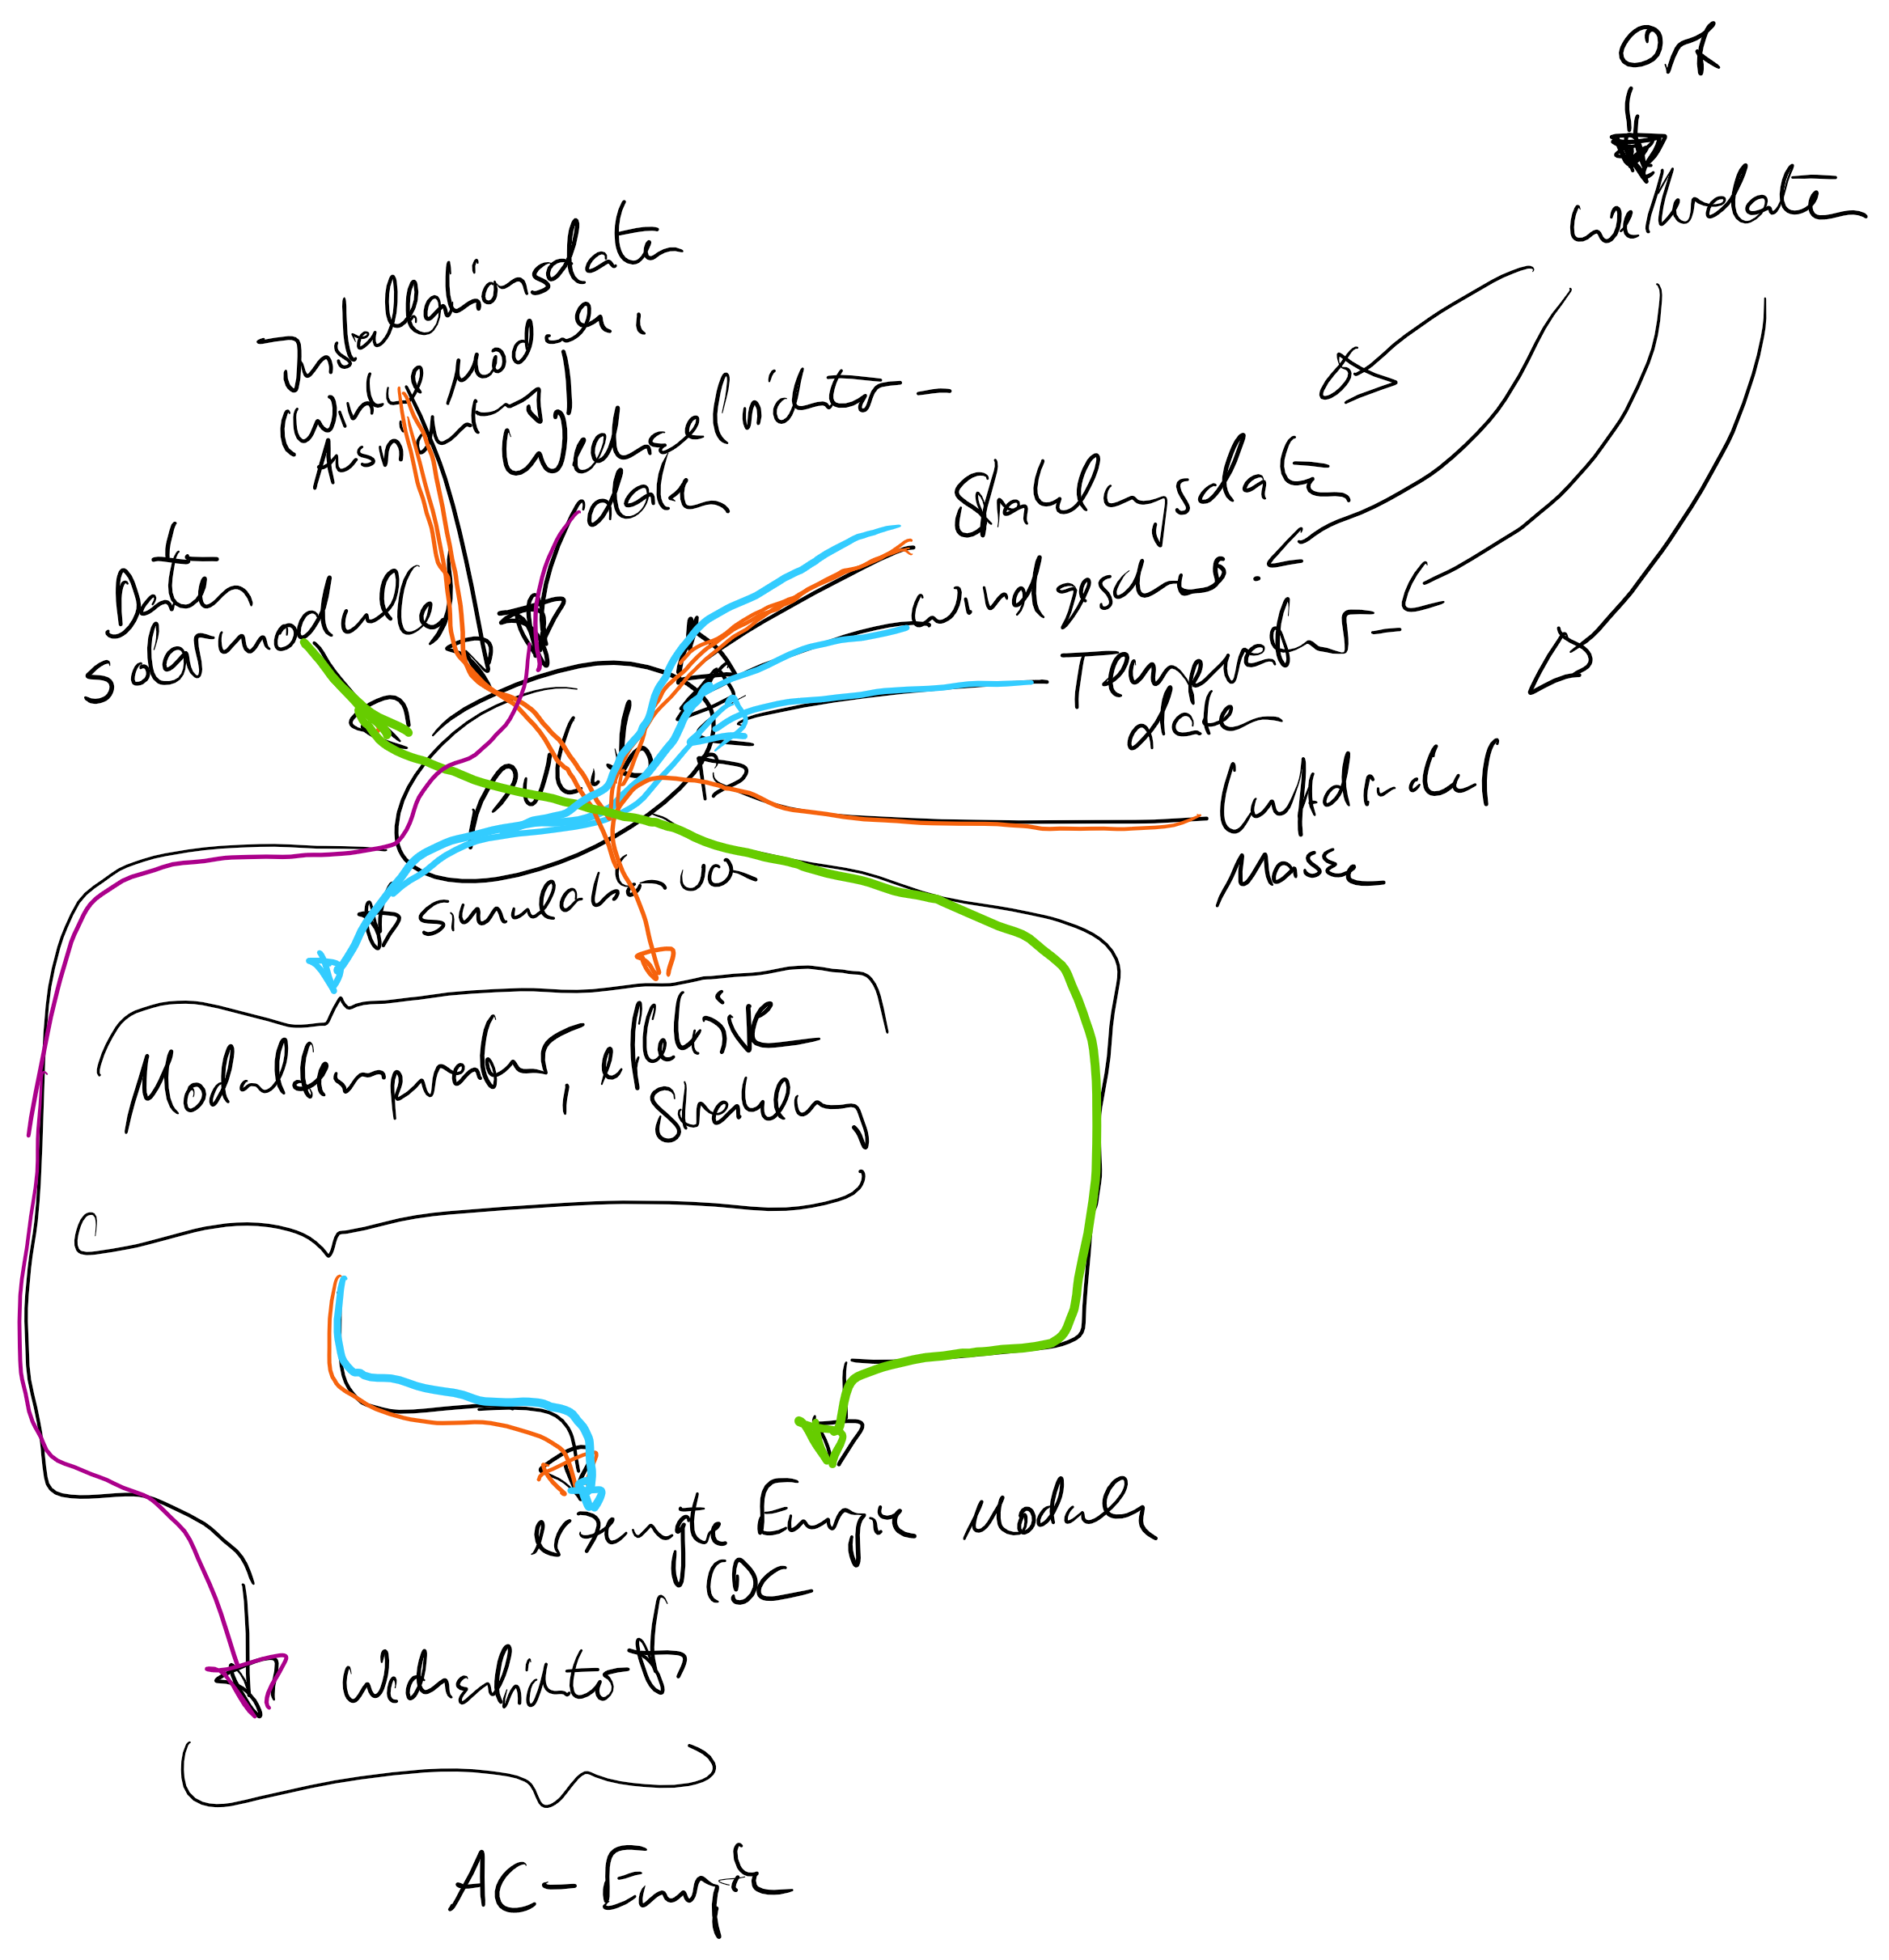 Ort
Wetterdaten
Installationsdaten
(Winkel, module,
Ausrichtung)
Wechselrichter-
daten
Strahlungsdaten
windgeschw.
Temperatur-
daten
Luftdruck
Masse
Daten
solarmodule
Simulation von
Modultemperatur, effektive
Strahlung
erzeugte Energie Module
(DC
Wechselrichter
AC-Energie